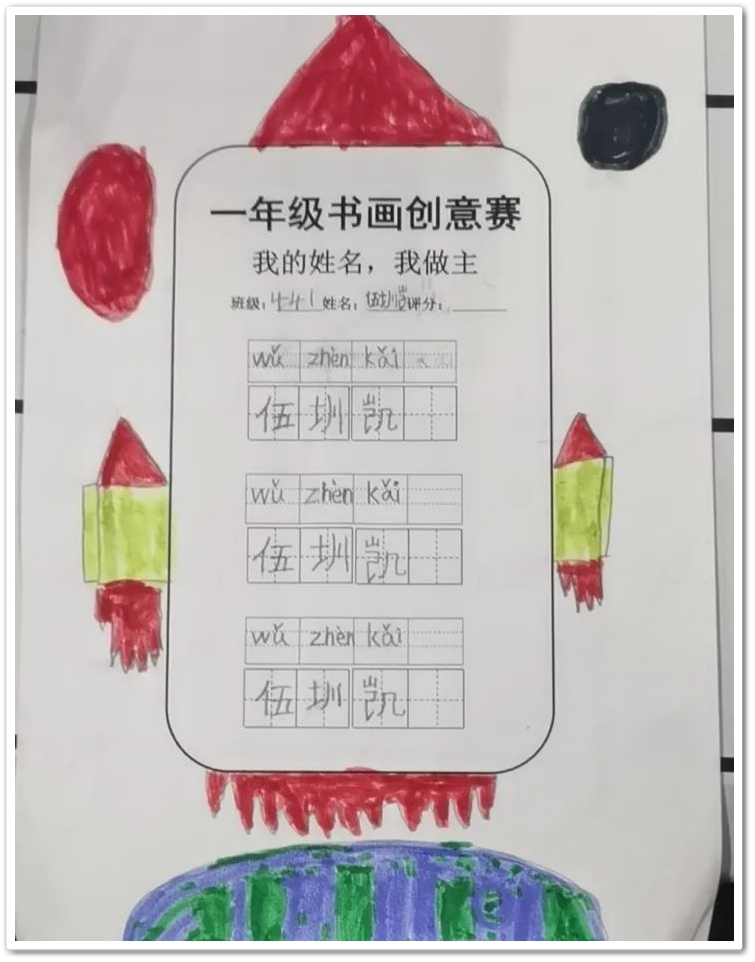 一年级书画创意赛
我的姓名，我做主
班级：441 姓名：伍圳凯 评分：
wǔ zhèn kǎi
伍 圳 凯
wǔ zhèn kǎi
伍 圳 凯
wǔ zhèn kǎi
伍 圳 凯